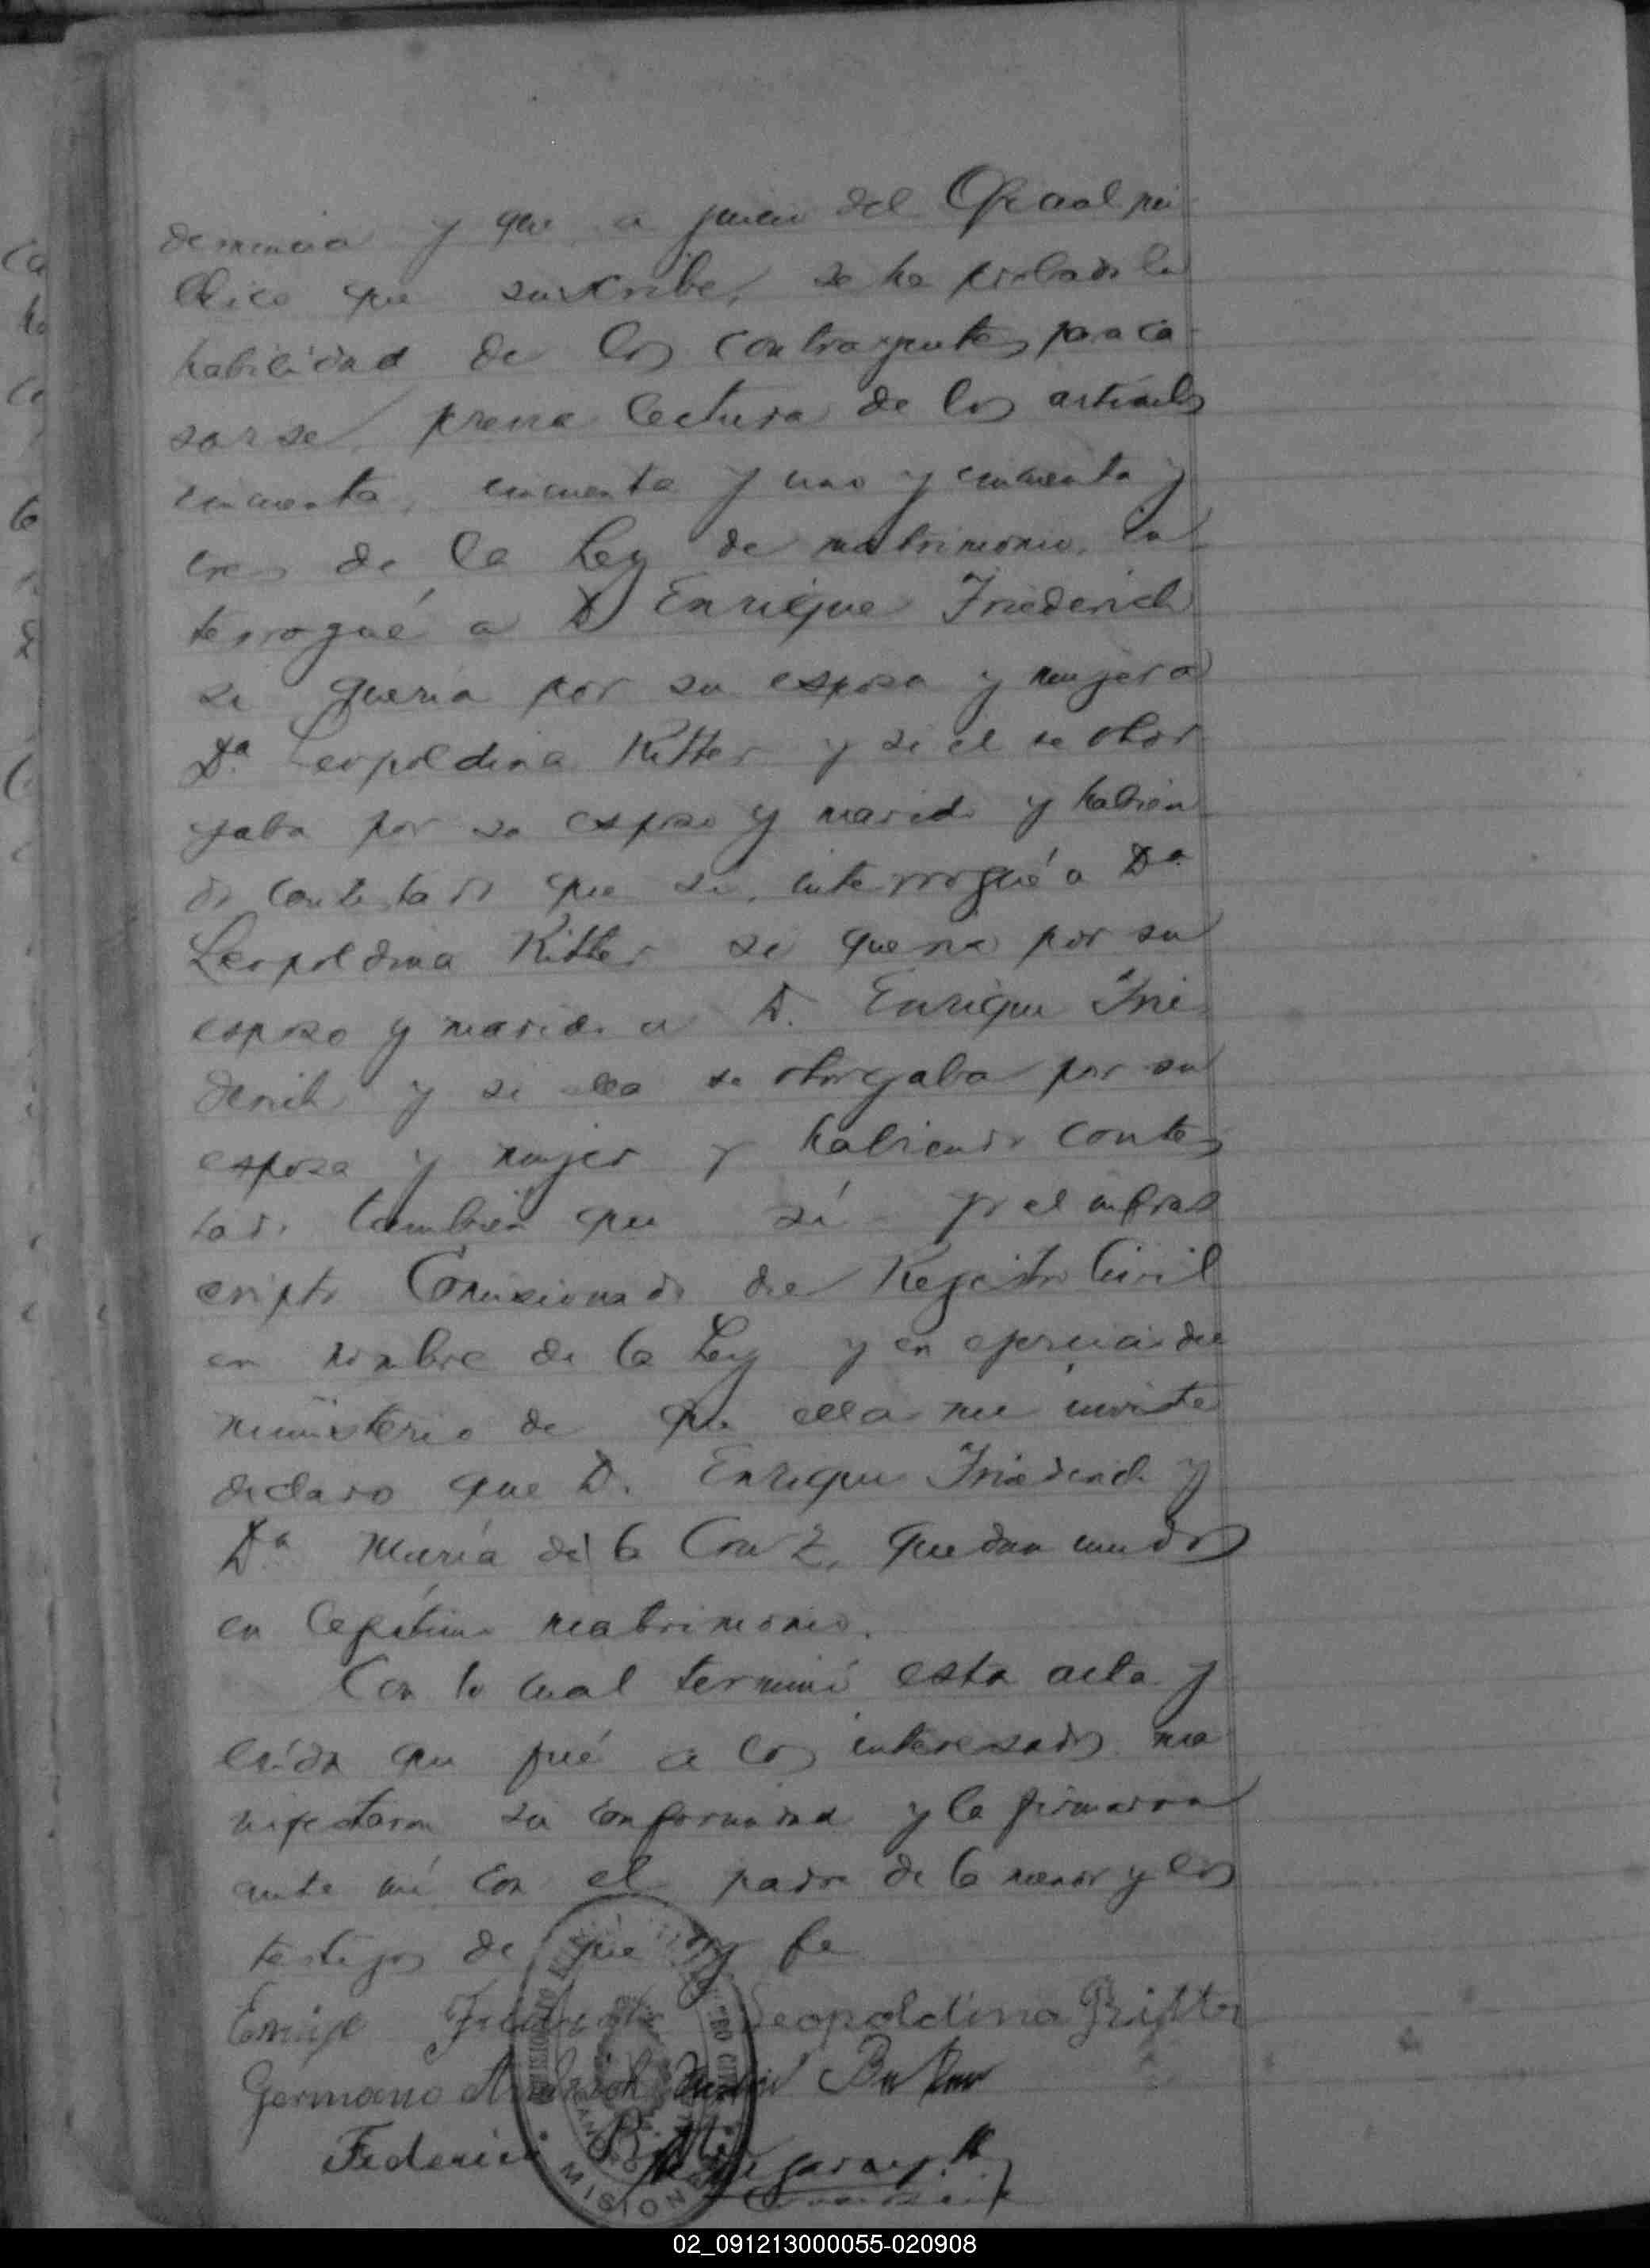 denuncia y que a juicio del Oficial pú
blico que suscribe, se ha probado la
habilidad de los contrayentes para ca
sarse, previa lectura de los artículos
cincuenta, cincuenta y uno y cincuenta y
tres de la Ley de matrimonio, in
terrogué a D Enrique Friederich
si quería por su esposa y mujer a
Dª Leopoldina Ritter y si el se otor
gaba por su esposo y marido y habien
do contestado que si, interrogué a Dª
Leopoldina Ritter si quería por su
esposo y marido a D. Enrique Frie
derich y si ella se otorgaba por su
esposa y mujer y habiendo contes
tado también que sí - yo el infras
cripto Comisionado del Registro Civil
en nombre de la Ley y en ejercicio del
ministerio de que ella me inviste
declaro que D. Enrique Friederich y
Dª María de la Cruz, quedan unidos
en legítimo matrimonio.
Con lo cual terminó esta acta y
leída que fué a los interesados ma
nifestaron su conformidad y la firmaron
ante mí con el padre de la menor y los
testigos de que doy fe
Enrique Leopoldina Ritter
Germano
Federico
MISIONES
02_091213000055-020908